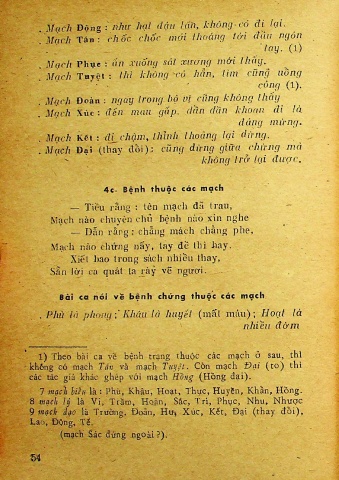 . Mạch Động : như hạt đậu lăn, không có đi lại.
. Mạch Tán : chốc chốc mới thoảng tới đầu ngón
tay. (1)
. Mạch Phục : ấn xuống sát xương mới thấy.
. Mạch Tuyệt : thì không có hẳn, tìm cũng uổng
công (1).
. Mạch Đoản : ngay trong bộ vị cũng không thấy
. Mạch Xúc : đến mau gấp, dần dần khoan đi là
đáng mừng.
. Mạch Kết : đi chậm, thỉnh thoảng lại dừng.
. Mạch Đại (thay đổi) : cũng dừng giữa chừng mà
không trở lại được.
4c- Bệnh thuộc các mạch
— Tiều rằng : tên mạch đã trau,
Mạch nào chuyên chủ bệnh nào xin nghe
— Dẫn rằng : chẳng mách chẳng phe,
Mạch nào chứng nấy, tay đè thì hay.
Xiết bao trong sách nhiều thay,
Sẵn lời ca quát ta rày vẽ ngươi.
Bài ca nói về bệnh chứng thuộc các mạch
. Phù là phong ; Khâu là huyết (mất máu) ; Hoạt là
nhiều đờm
1) Theo bài ca về bệnh trạng thuộc các mạch ở sau, thì
không có mạch Tán và mạch Tuyệt. Còn mạch Đại (to) thì
các tác giả khác ghép với mạch Hồng (Hồng đại).
7 mạch biểu là : Phù, Khâu, Hoạt, Thực, Huyền, Khẩn, Hồng.
8 mạch lý là Vi, Trầm, Hoãn, Sắc, Trì, Phục, Nhu, Nhược
9 mạch đạo là Trường, Đoản, Hư, Xúc, Kết, Đại (thay đổi),
Lao, Động, Tế.
(mạch Sác đứng ngoài ?).
54